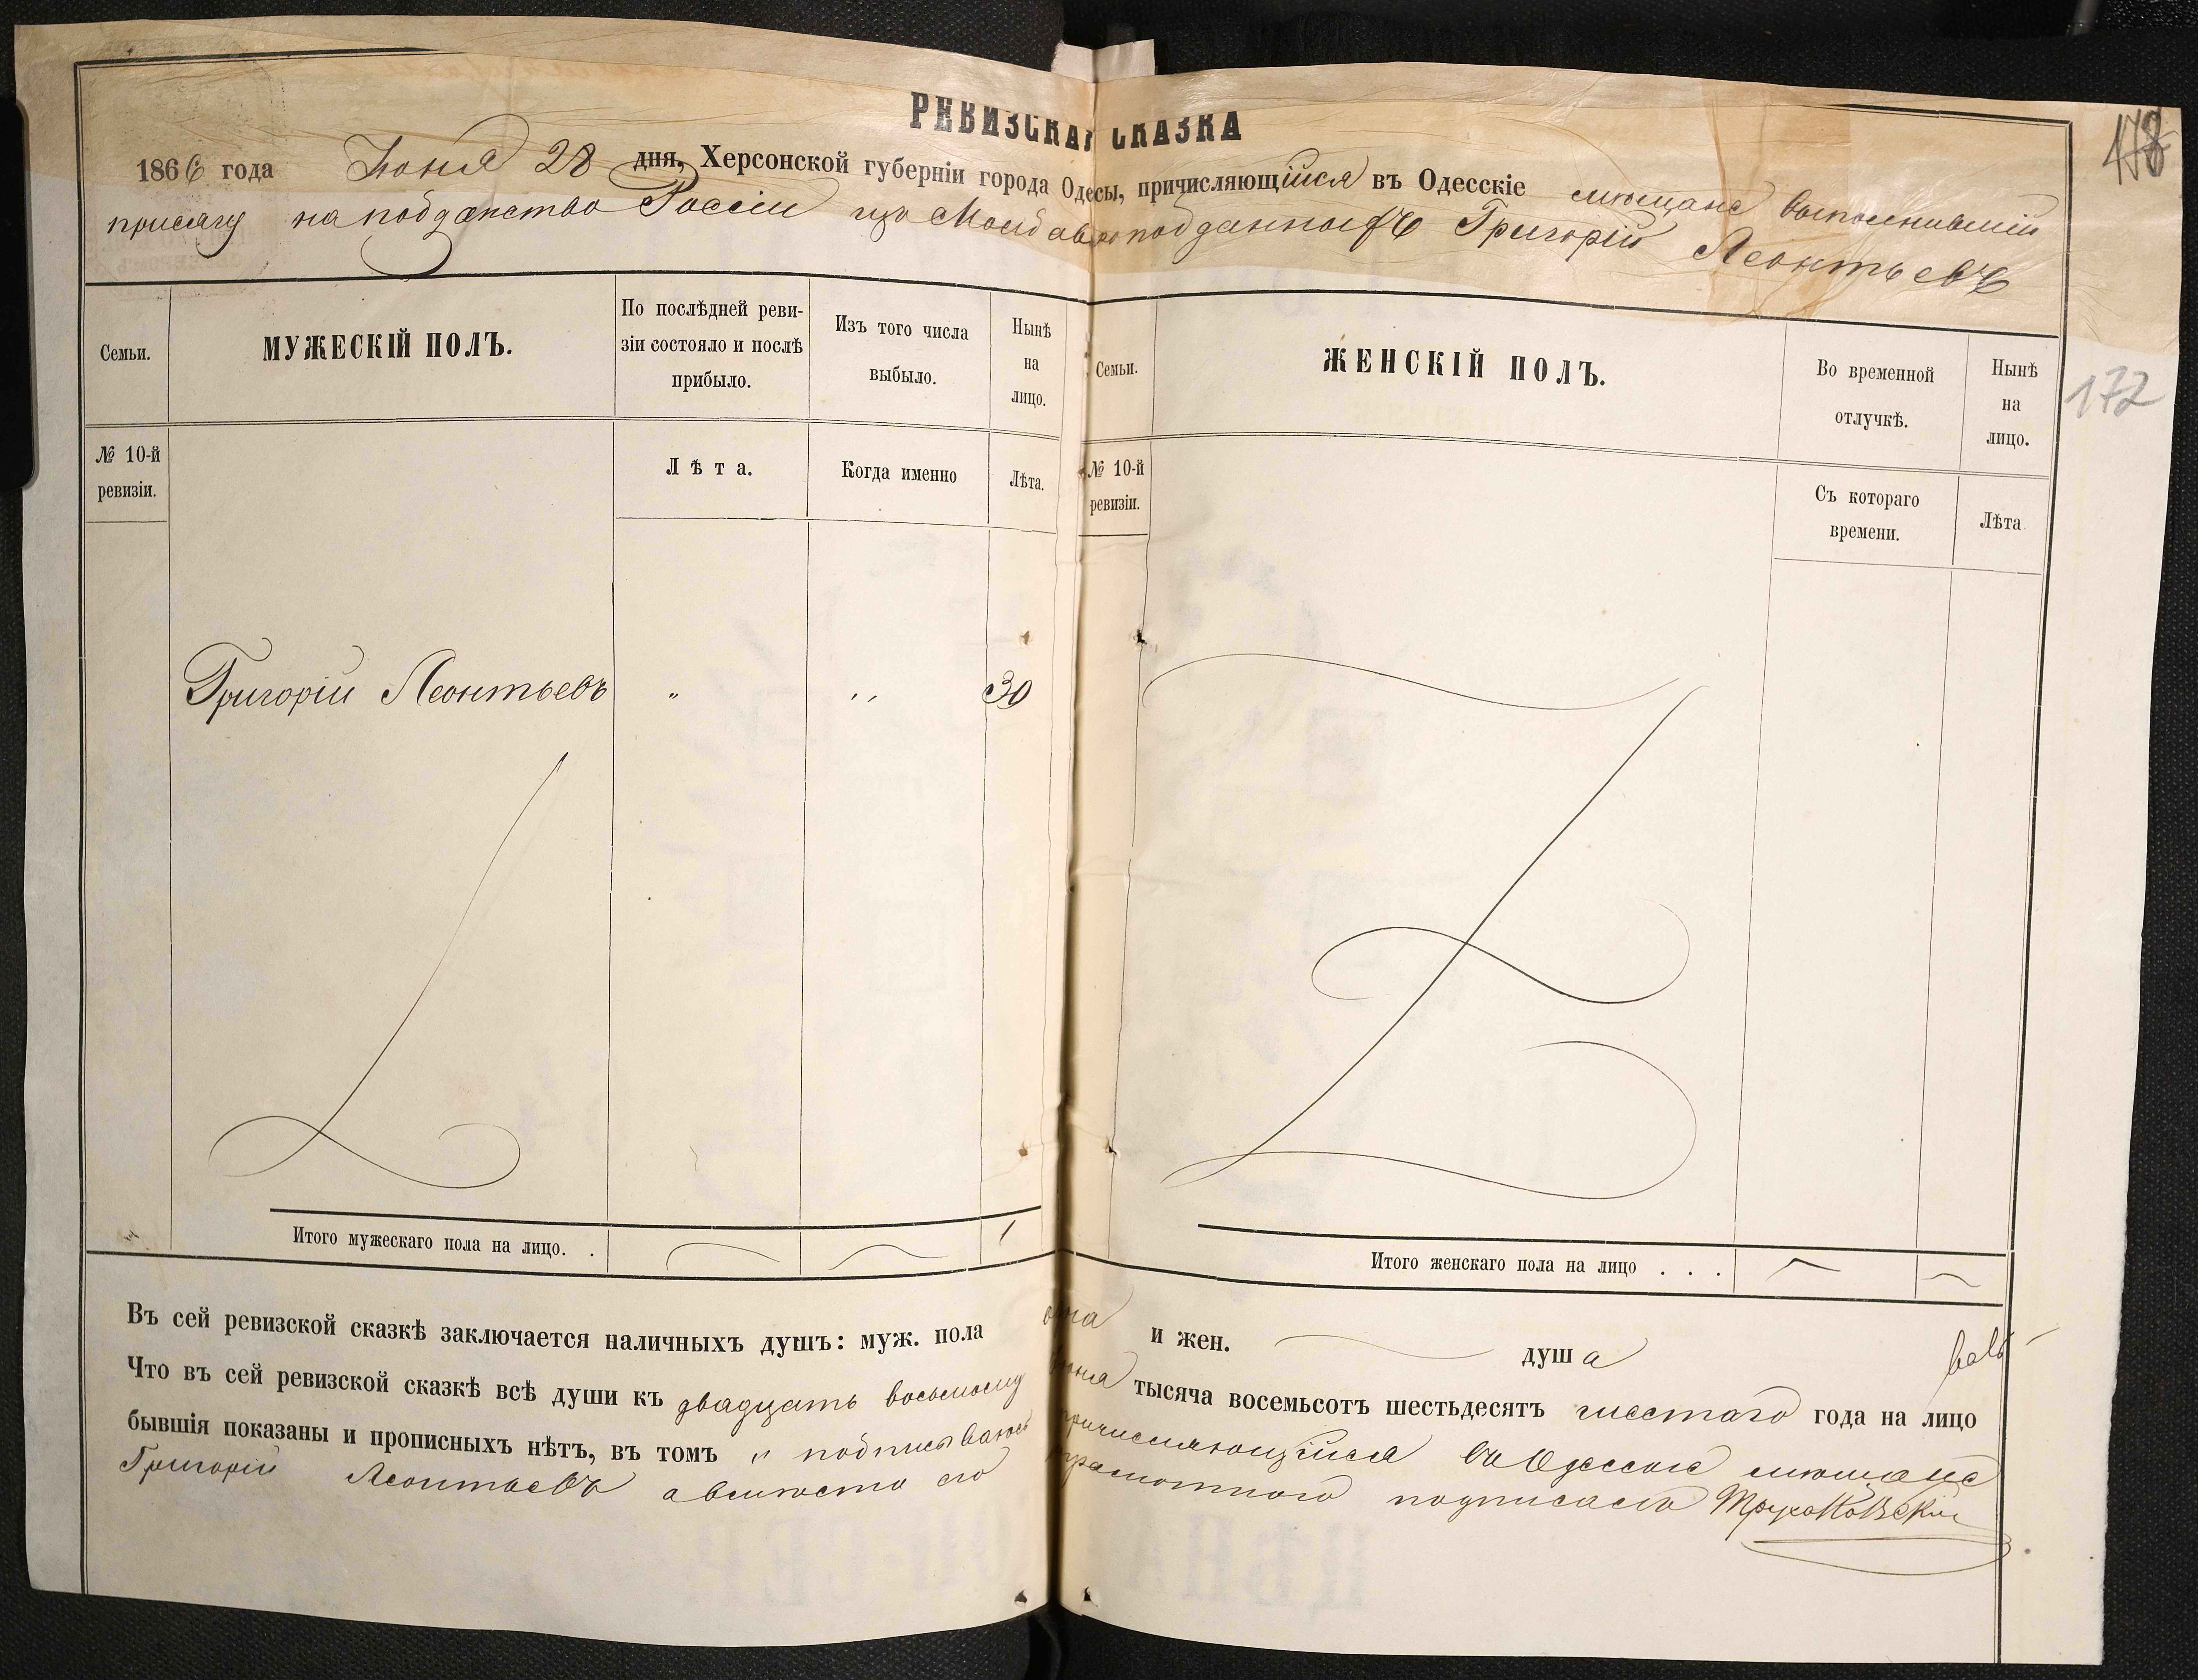 РЕВИЗСКАЯ СКАЗКА
178
1866 года Іюня 28 дня, Херсонской губерніи города Одесы, причисляющійся въ Одесскіе мѣщане выполнившій
присягу на подданство Россіи изъ Молдавскоподданныхъ Григорій Леонтьевъ
Семьи.
МУЖЕСКІЙ ПОЛЪ.
По послѣдней реви-
зіи состояло и послѣ
прибыло.
Изъ того числа
выбыло.
Нынѣ
на
лицо.
Семьи.
ЖЕНСКІЙ ПОЛЪ.
Во временной
отлучкѣ.
Нынѣ
на
лицо.
172
№ 10-й
ревизіи.
Лѣта.
Когда именно
Лѣта.
№ 10-й
ревизіи.
Съ котораго
времени.
Лѣта
Григорій Леонтьевъ " " 30
Итого мужескаго пола на лицо. . 1
Итого женскаго пола на лицо . . .
Въ сей ревизской сказкѣ заключается наличныхъ душъ: муж. пола одна и жен. душа
Что въ сей ревизской сказкѣ всѣ души къ двадцать восьмому Іюня тысяча восемьсотъ шестьдесятъ шестаго года на лицо
бывшія показаны и прописныхъ нѣтъ, въ томъ и подписываюсь причисляющійся въ Одесскіе мѣщане
Григорій Леонтьевъ а вмѣсто его неграмотнаго подписался